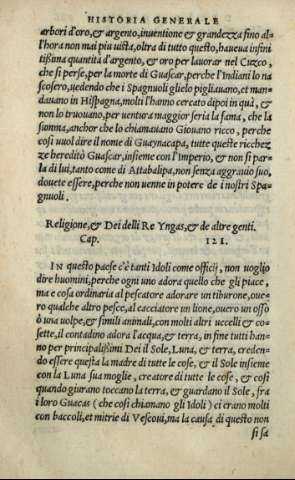 HISTORIA GENERALE
arbori d'oro, & argento, inuentione & grandezza fino al-
l'hora non mai piu uista, oltra di tutto questo, haueua infini
tissima quantita d'argento, & oro per lauorar nel Cuzco,
che si perse, per la morte di Guascar, perche l'Indiani lo na
scosero, uedendo che i Spagnuoli glielo pigliauano, et man-
dauano in Hispagna, molti l'hanno cercato dipoi in quà, &
non lo truouano, per uentura maggior seria la fama, che la
somma, anchor che lo chiamauano Giouano ricco, perche
così uuol dire il nome di Guaynacapa, tutte queste ricchez
ze hereditò Guascar, insieme con l'Imperio, & non si par-
la di lui, tanto come di Attabalipa, non senza aggrauio suo,
douete essere, perche non uenne in potere de i nostri Spa-
gnuoli.
Religione, & Dei delli Re Yngas, & de altre genti.
Cap. 121.
IN questo paese c'è tanti Idoli come officij, non uoglio
dire huomini, perche ogni uno adora quello che gli piace,
ma e cosa ordinaria al pescatore adorare un tiburone, oue-
ro qualche altro pesce, al cacciatore un lione, ouero un osso
ò una uolpe, & simili animali, con molti altri uccelli & co-
sette, il contadino adora l'acqua, & terra, in fine tutti han-
no per principalissimi Dei il Sole, Luna, & terra, creden-
do essere questa la madre di tutte le cose, & il Sole insieme
con la Luna sua moglie, creatore di tutte le cose, & così
quando giurano toccano la terra, & guardano il Sole, fra
i loro Guacas (che così chiamano gli Idoli) ci erano molti
con baccoli, et mitrie di Vescoui, ma la causa di questo non
si sa